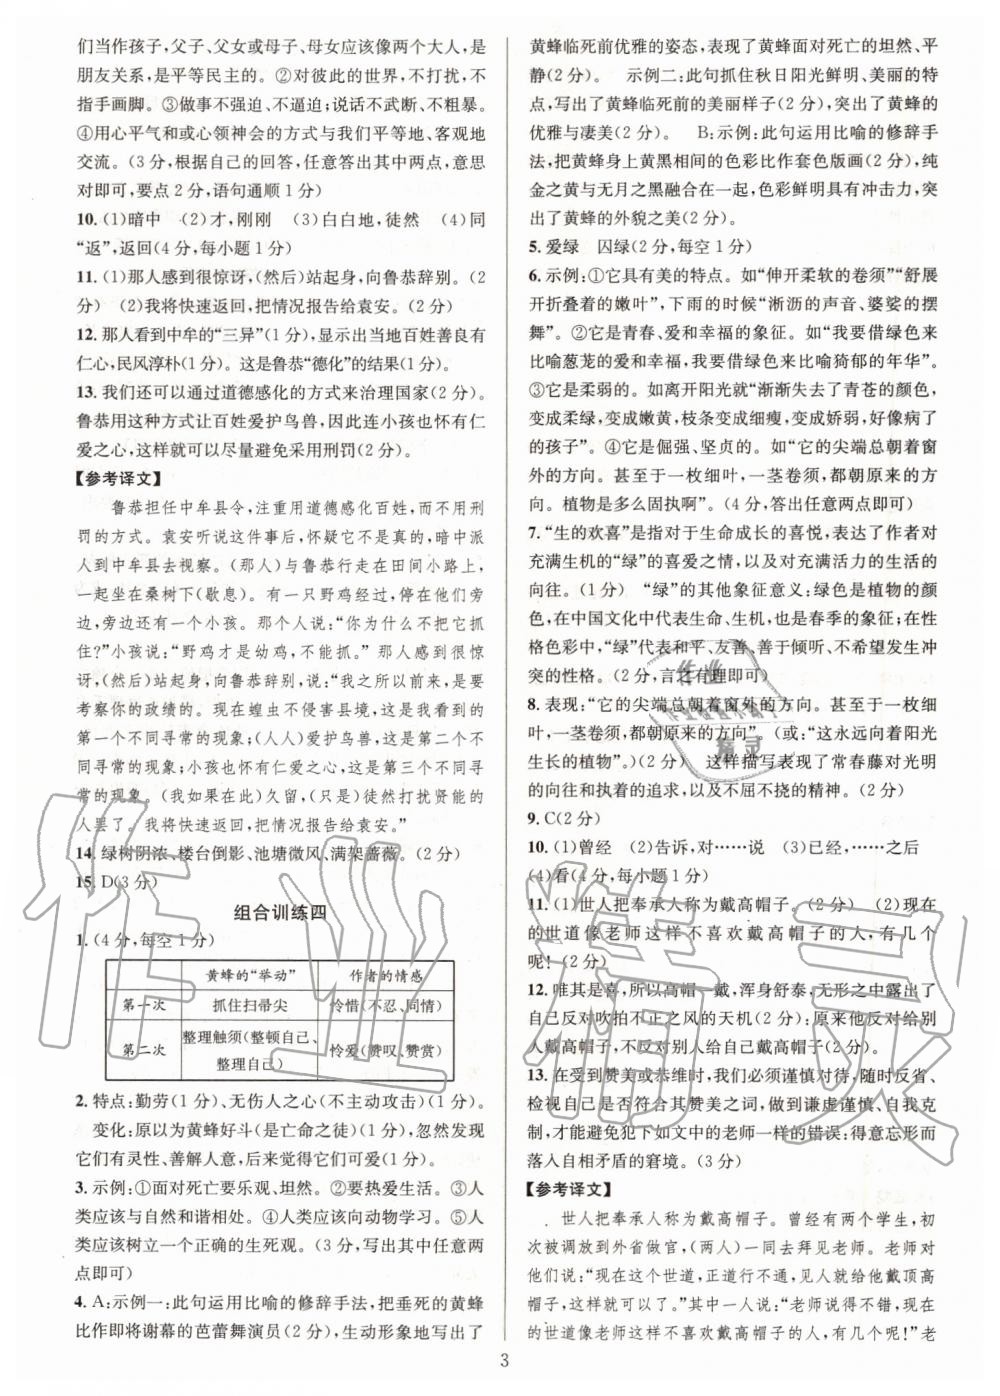 们当作孩子,父子、父女或母子、母女应该像两个大人,是
朋友关系,是平等民主的。②对彼此的世界,不打扰、不
指手画脚。③做事不强迫、不逼迫;说话不武断、不粗暴。
④用心平气和或心领神会的方式与我们平等地、客观地
交流。(3分,根据自己的回答,任意答出其中两点,意思
对即可,要点2分,语句通顺1分)
10.(1)暗中 (2)才,刚刚 (3)白白地,徒然 (4)同
“返”,返回(4分,每小题1分)
11.(1)那人感到很惊讶,(然后)站起身,向鲁恭辞别。(2
分) (2)我将快速返回,把情况报告给袁安。(2分)
12.那人看到中牟的“三异”(1分),显示出当地百姓善良有
仁心,民风淳朴(1分)。这是鲁恭“德化”的结果(1分)。
13.我们还可以通过道德感化的方式来治理国家(2分)。
鲁恭用这种方式让百姓爱护鸟兽,因此连小孩也怀有仁
爱之心,这样就可以尽量避免采用刑罚(2分)。
【参考译文】
鲁恭担任中牟县令,注重用道德感化百姓,而不用刑
罚的方式。袁安听说这件事后,怀疑它不是真的,暗中派
人到中牟县去视察。(那人)与鲁恭行走在田间小路上,
一起坐在桑树下(歇息)。有一只野鸡经过,停在他们旁
边,旁边有一个小孩。那个人说:“你为什么不把它抓
住?”小孩说:“野鸡才是幼鸡,不能抓。”那人感到很惊
讶,(然后)站起身,向鲁恭辞别,说:“我之所以前来,是要
考察你的政绩的。现在蝗虫不侵害县境,这是我发现的
第一个不同寻常的现象;(人人)爱护鸟兽,这是第二个不
同寻常的现象;小孩也怀有仁爱之心,这是第三个不同寻
常的现象。(我如果在此)久留,(只是)徒然打扰贤能的
人罢了。我将快速返回,把情况报告给袁安。”
14.绿树阴浓、楼台倒影、池塘微风、满架蔷薇。(2分)
15.D(3分)
组合训练四
1.(4分,每空1分)
黄蜂的“举动” 作者的情感
第一次 抓住扫帚尖 怜惜(不忍、同情)
第二次 整理触须(整顿自己、整理自己) 怜爱(赞叹、赞赏)
2.特点:勤劳(1分)、无伤人之心(不主动攻击)(1分)。
变化:原以为黄蜂好斗(是亡命之徒)(1分),忽然发现
它们有灵性、善解人意,后来觉得它们可爱(1分)。
3.示例:①面对死亡要乐观、坦然。②要热爱生活。③人
类应该与自然和谐相处。④人类应该向动物学习。⑤人
类应该树立一个正确的生死观。(3分,写出其中任意两
点即可)
4.A:示例一:此句运用比喻的修辞手法,把垂死的黄蜂
比作即将谢幕的芭蕾舞演员(2分),生动形象地写出了
黄蜂临死前优雅的姿态,表现了黄蜂面对死亡的坦然、平
静(2分)。 示例二:此句抓住秋日阳光鲜明、美丽的特
点,写出了黄蜂临死前的美丽样子(2分),突出了黄蜂的
优雅与凄美(2分)。 B:示例:此句运用比喻的修辞手
法,把黄蜂身上黄黑相间的色彩比作套色版画(2分),纯
金之黄与无月之黑融合在一起,色彩鲜明具有冲击力,突
出了黄蜂的外貌之美(2分)。
5.爱绿 囚绿(2分,每空1分)
6.示例:①它具有美的特点。如“伸开柔软的卷须”“舒展
开折叠着的嫩叶”,下雨的时候“淅沥的声音、婆娑的摆
舞”。②它是青春、爱和幸福的象征。如“我要借绿色来
比喻葱茏的爱和幸福,我要借绿色来比喻猗郁的年华”。
③它是柔弱的。如离开阳光就“渐渐失去了青苍的颜色,
变成柔绿,变成嫩黄,枝条变成细瘦,变成娇弱,好像病了
的孩子”。④它是倔强、坚贞的。如“它的尖端总朝着窗
外的方向。甚至于一枚细叶,一茎卷须,都朝原来的方
向。植物是多么固执啊”。(4分,答出任意两点即可)
7.“生的欢喜”是指对于生命成长的喜悦,表达了作者对
充满生机的“绿”的喜爱之情,以及对充满活力的生活的
向往。(1分) “绿”的其他象征意义:绿色是植物的颜
色,在中国文化中代表生命、生机,也是春季的象征;在性
格色彩中,“绿”代表和平、友善、善于倾听、不希望发生冲
突的性格。(2分,言之有理即可)
8.表现:“它的尖端总朝着窗外的方向。甚至于一枚细
叶,一茎卷须,都朝原来的方向”。(或:“这永远向着阳光
生长的植物”。)(2分) 这样描写表现了常春藤对光明
的向往和执着的追求,以及不屈不挠的精神。(2分)
9.C(2分)
10.(1)曾经 (2)告诉,对……说 (3)已经,……之后
(4)看(4分,每小题1分)
11.(1)世人把奉承人称为戴高帽子。(2分) (2)现在
的世道像老师这样不喜欢戴高帽子的人,有几个
呢!(2分)
12.唯其是喜,所以高帽一戴,浑身舒泰,无形之中露出了
自己反对吹拍不正之风的天机(2分):原来他只反对给
别人戴高帽子,不反对别人给自己戴高帽子(2分)。
13.在受到赞美或恭维时,我们必须谨慎对待,随时反省、
检视自己是否符合其赞美之词,做到谦虚谨慎、自我克
制,才能避免犯下如文中的老师一样的错误:得意忘形而
落入自相矛盾的窘境。(3分)
【参考译文】
世人把奉承人称为戴高帽子。曾经有两个学生,初
次被调放到外省做官,(两人)一同去拜见老师。老师对
他们说:“现在这个世道,正道行不通,见人就送他戴顶高
帽子,这样就可以了。”其中一人说:“老师说得不错,现在
的世道像老师这样不喜欢戴高帽子的人,有几个呢!”老
3
作业
精灵
作业精灵